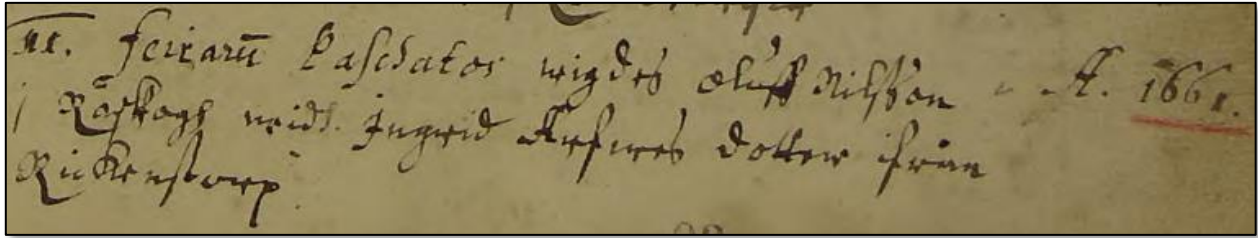 III. Feirarū Paschatos wigdes Oluff Nilsson A. 1661.
i Röskogh widh Ingrid Arfwes dotter ifrån
Rickenstorp